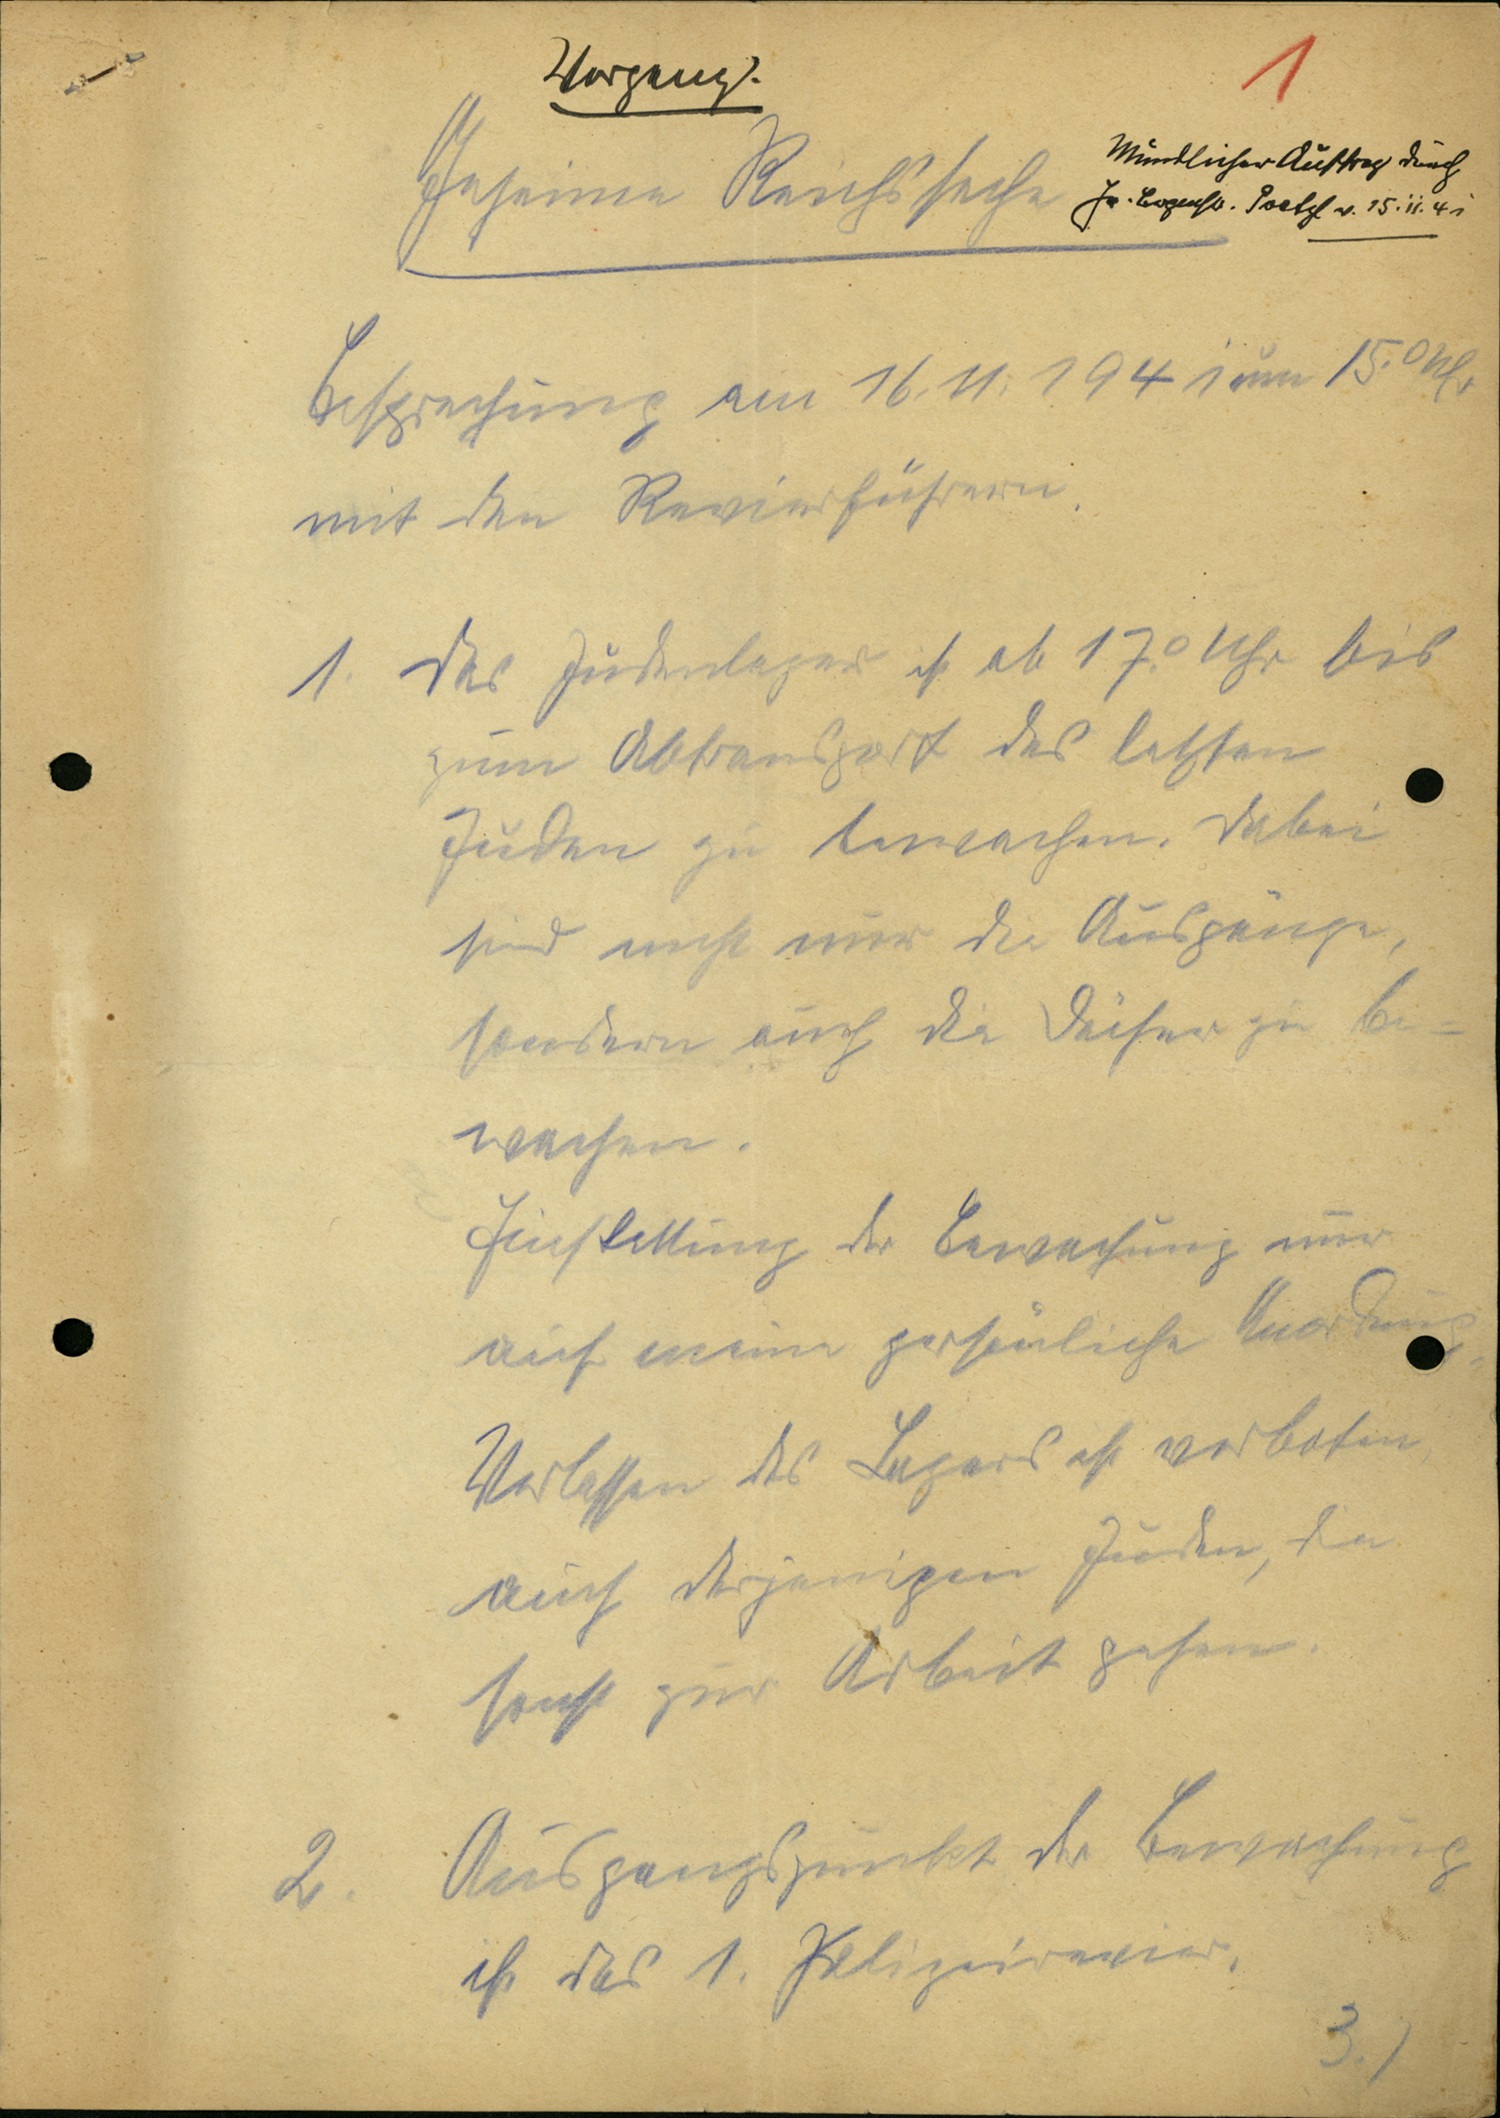 Vorgang.
1
Geheime Reichssache
Mündlicher Auftrag durch
v. 15.11.41
Besprechung am 16.11.1941 um 15.0 Uhr
mit den Revierführern.
1. Das Judenlager ist ab 17.0 Uhr bis
zum Abtransport des letzten
Juden zu bewachen. Dabei
sind nicht nur die Ausgänge,
sondern auch die Dächer zu be=
wachen.
Einstellung der Bewachung nur
auf meine persönliche Anordnung.
Verlassen des Lagers ist verboten,
auch derjenigen Juden, die
sonst zur Arbeit gehen.
2. Ausgangspunkt der Bewachung
ist das 1. Polizeirevier.
3./